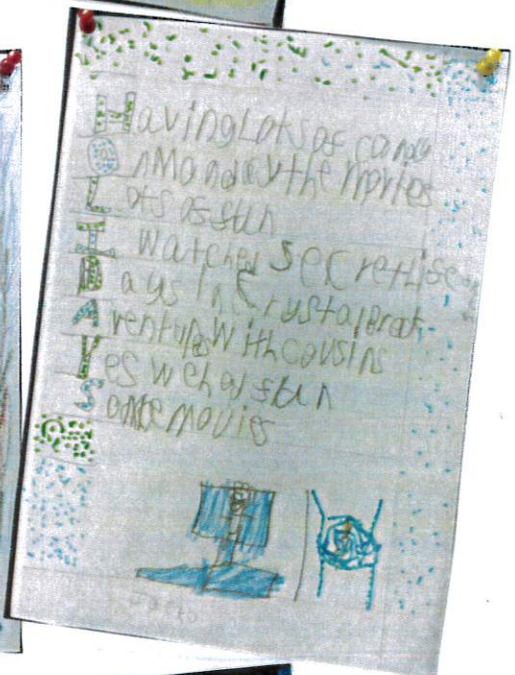 Having Lots of candy
On Monday the Movies
Lots of fun
I watched Secret Life
Days In Crystal Brook
Aventures With cousins
Yes we had fun
Some Movies